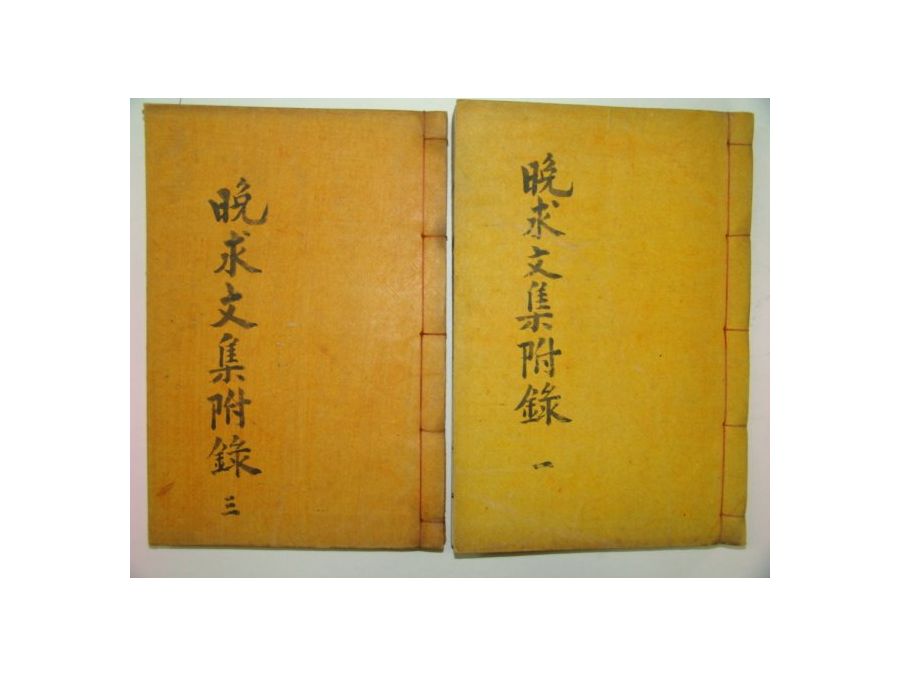 晩求文集附錄 一
晩求文集附錄 三